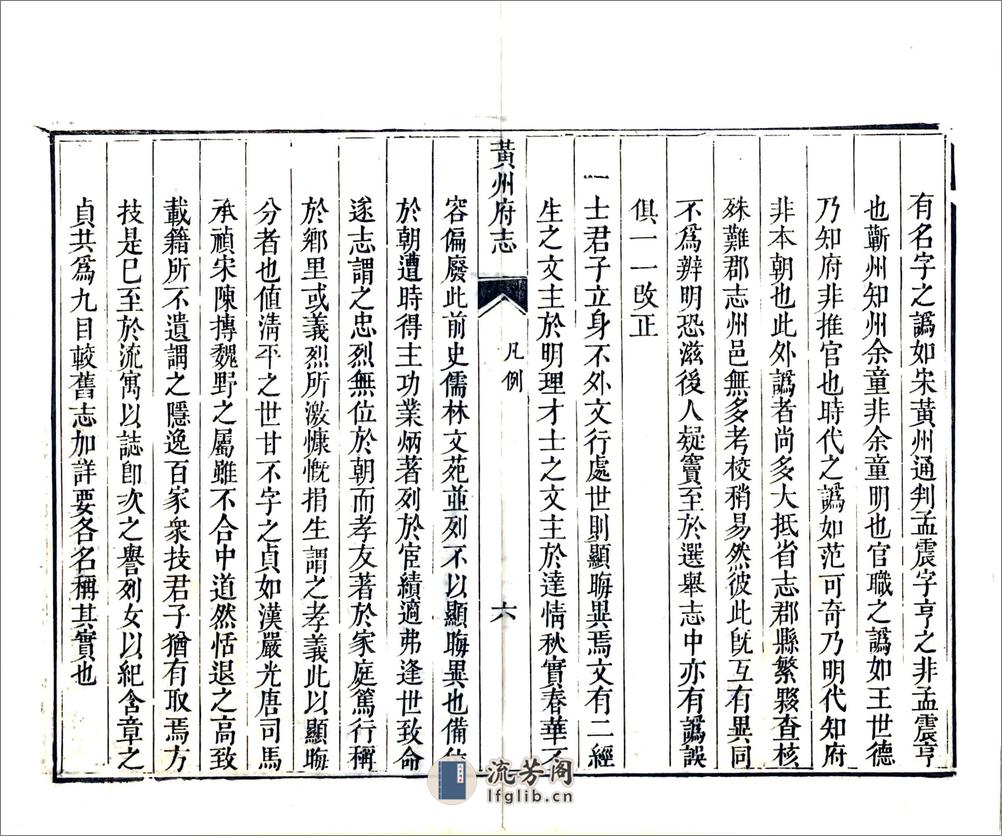 有名字之譌如宋黃州通判孟震字亨之非孟震亨
也蘄州知州余童非余童明也官職之譌如王世德
乃知府非推官也時代之譌如范可奇乃明代知府
非本朝也此外譌者尚多大抵省志郡縣繁夥查核
殊難郡志州邑無多考校稍易然彼此旣互有異同
不爲辨明恐滋後人疑竇至於選舉志中亦有譌誤
俱一一改正
一士君子立身不外文行處世則顯晦異焉文有二經
生之文主於明理才士之文主於達情秋實春華不
黃州府志
凡例
六
容偏廢此前史儒林文苑並列不以顯晦異也備位
於朝遭時得主功業炳著列於宦績適弗逢世致命
遂志謂之忠烈無位於朝而孝友著於家庭篤行稱
於鄉里或義烈所激慷慨捐生謂之孝義此以顯晦
分者也值清平之世甘不字之貞如漢嚴光唐司馬
承禎宋陳摶魏野之屬雖不合中道然恬退之高致
載籍所不遺謂之隱逸百家衆技君子猶有取焉方
技是已至於流寓以誌卽次之譽列女以紀含章之
貞共爲九目較舊志加詳要各名稱其實也
流芳阁
lfglib.cn